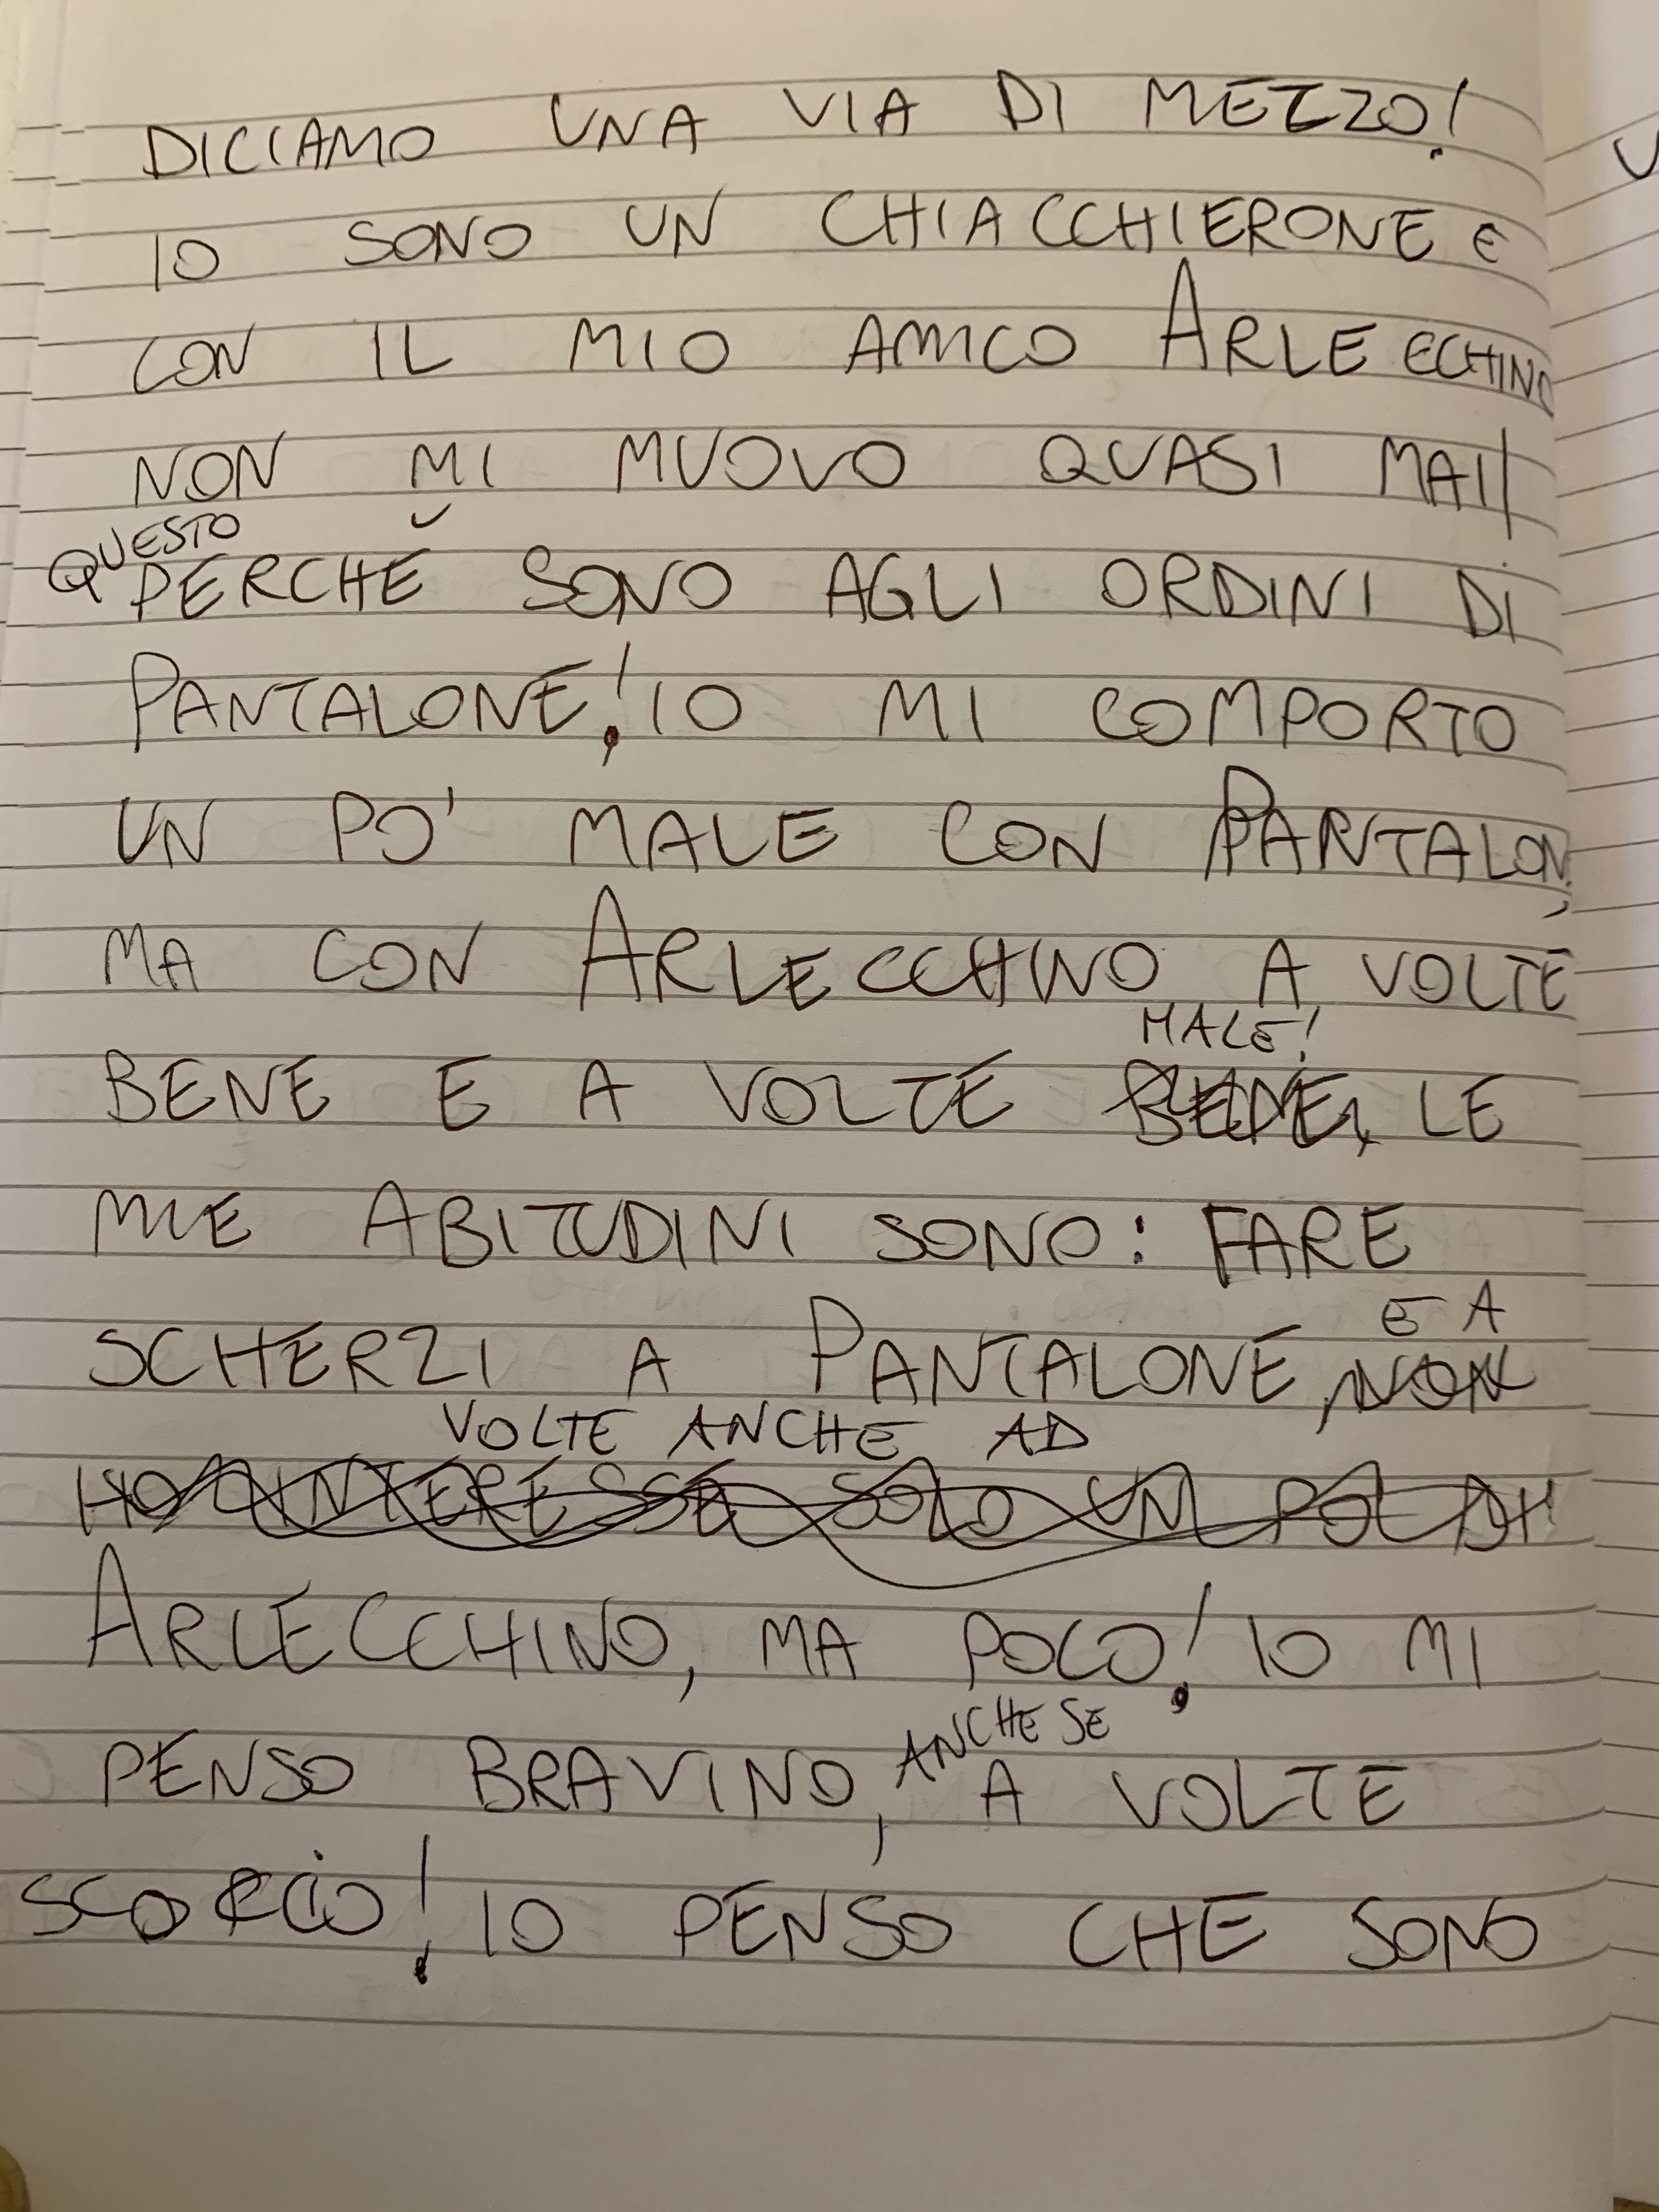 DICIAMO UNA VIA DI MEZZO!
IO SONO UN CHIACCHIERONE E
CON IL MIO AMICO ARLEECHINO
NON MI MUOVO QUASI MAI
QUESTO
PERCHÉ SONO AGLI ORDINI DI
PANTALONE! IO MI COMPORTO
UN PO' MALE CON PANTALON
MA CON ARLECCHINO A VOLTE
MALE!
BENE E A VOLTE BENE, LE
MIE ABITUDINI SONO: FARE
E A
SCHERZI A PANTALONE, NON
VOLTE ANCHE AD
HO INTERESSE SOLO UN PO' DI
ARLECCHINO, MA POCO! IO MI
ANCHE SE
PENSO BRAVINO, A VOLTE
! IO PENSO CHE SONO